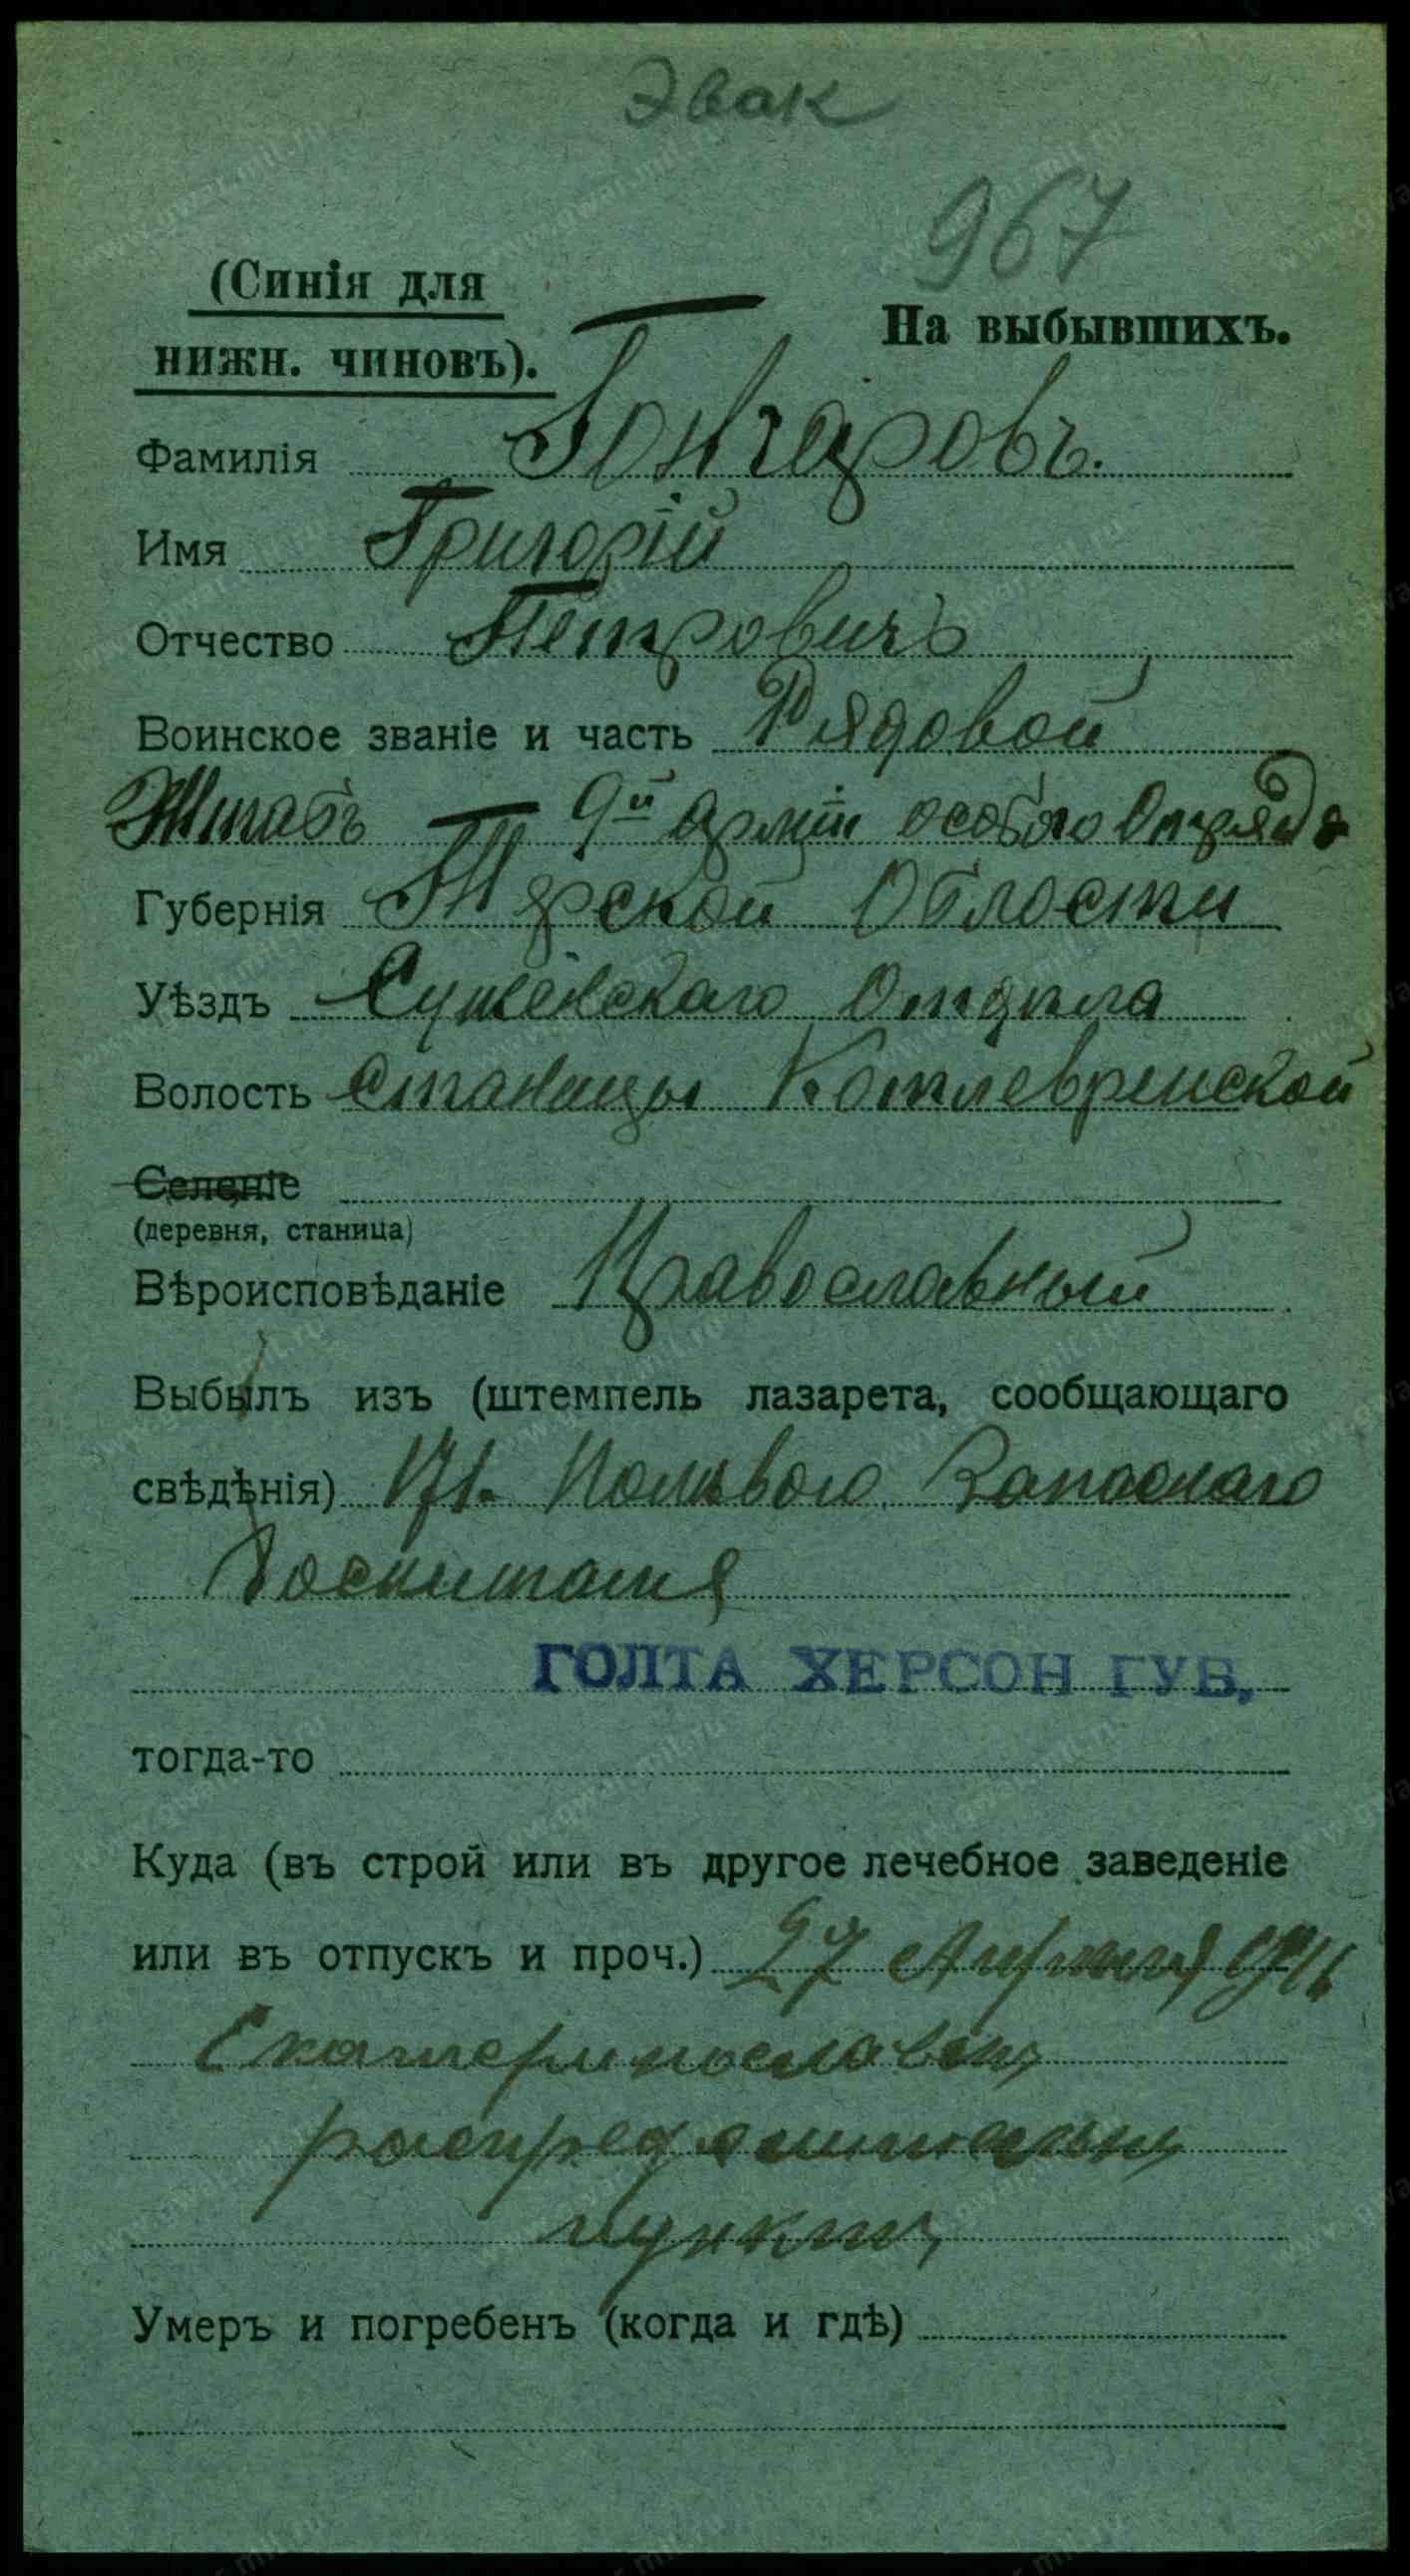 Эвак
967
(Синія для
нижн. чиновъ).
На выбывшихъ.
Фамилія Гончаровъ.
Имя Григорій
Отчество Петровичъ
Воинское званіе и часть Рядовой
Штабъ 9й арміи особого Отряда
Губернія Терской Области
Уѣздъ Сунженскаго Отдѣла
Волость станицы Котлевренской
Селеніе
(деревня, станица)
Вѣроисповѣданіе Православный
Выбылъ изъ (штемпель лазарета, сообщающаго
свѣдѣнія) 171. Полевого Запаснаго
Госпиталя
ГОЛТА ХЕРСОН ГУБ.
тогда-то
Куда (въ строй или въ другое лечебное заведеніе
или въ отпускъ и проч.) 27 Апрѣля 1916
Екатеринославск
распределительн
пункт
Умеръ и погребенъ (когда и гдѣ)